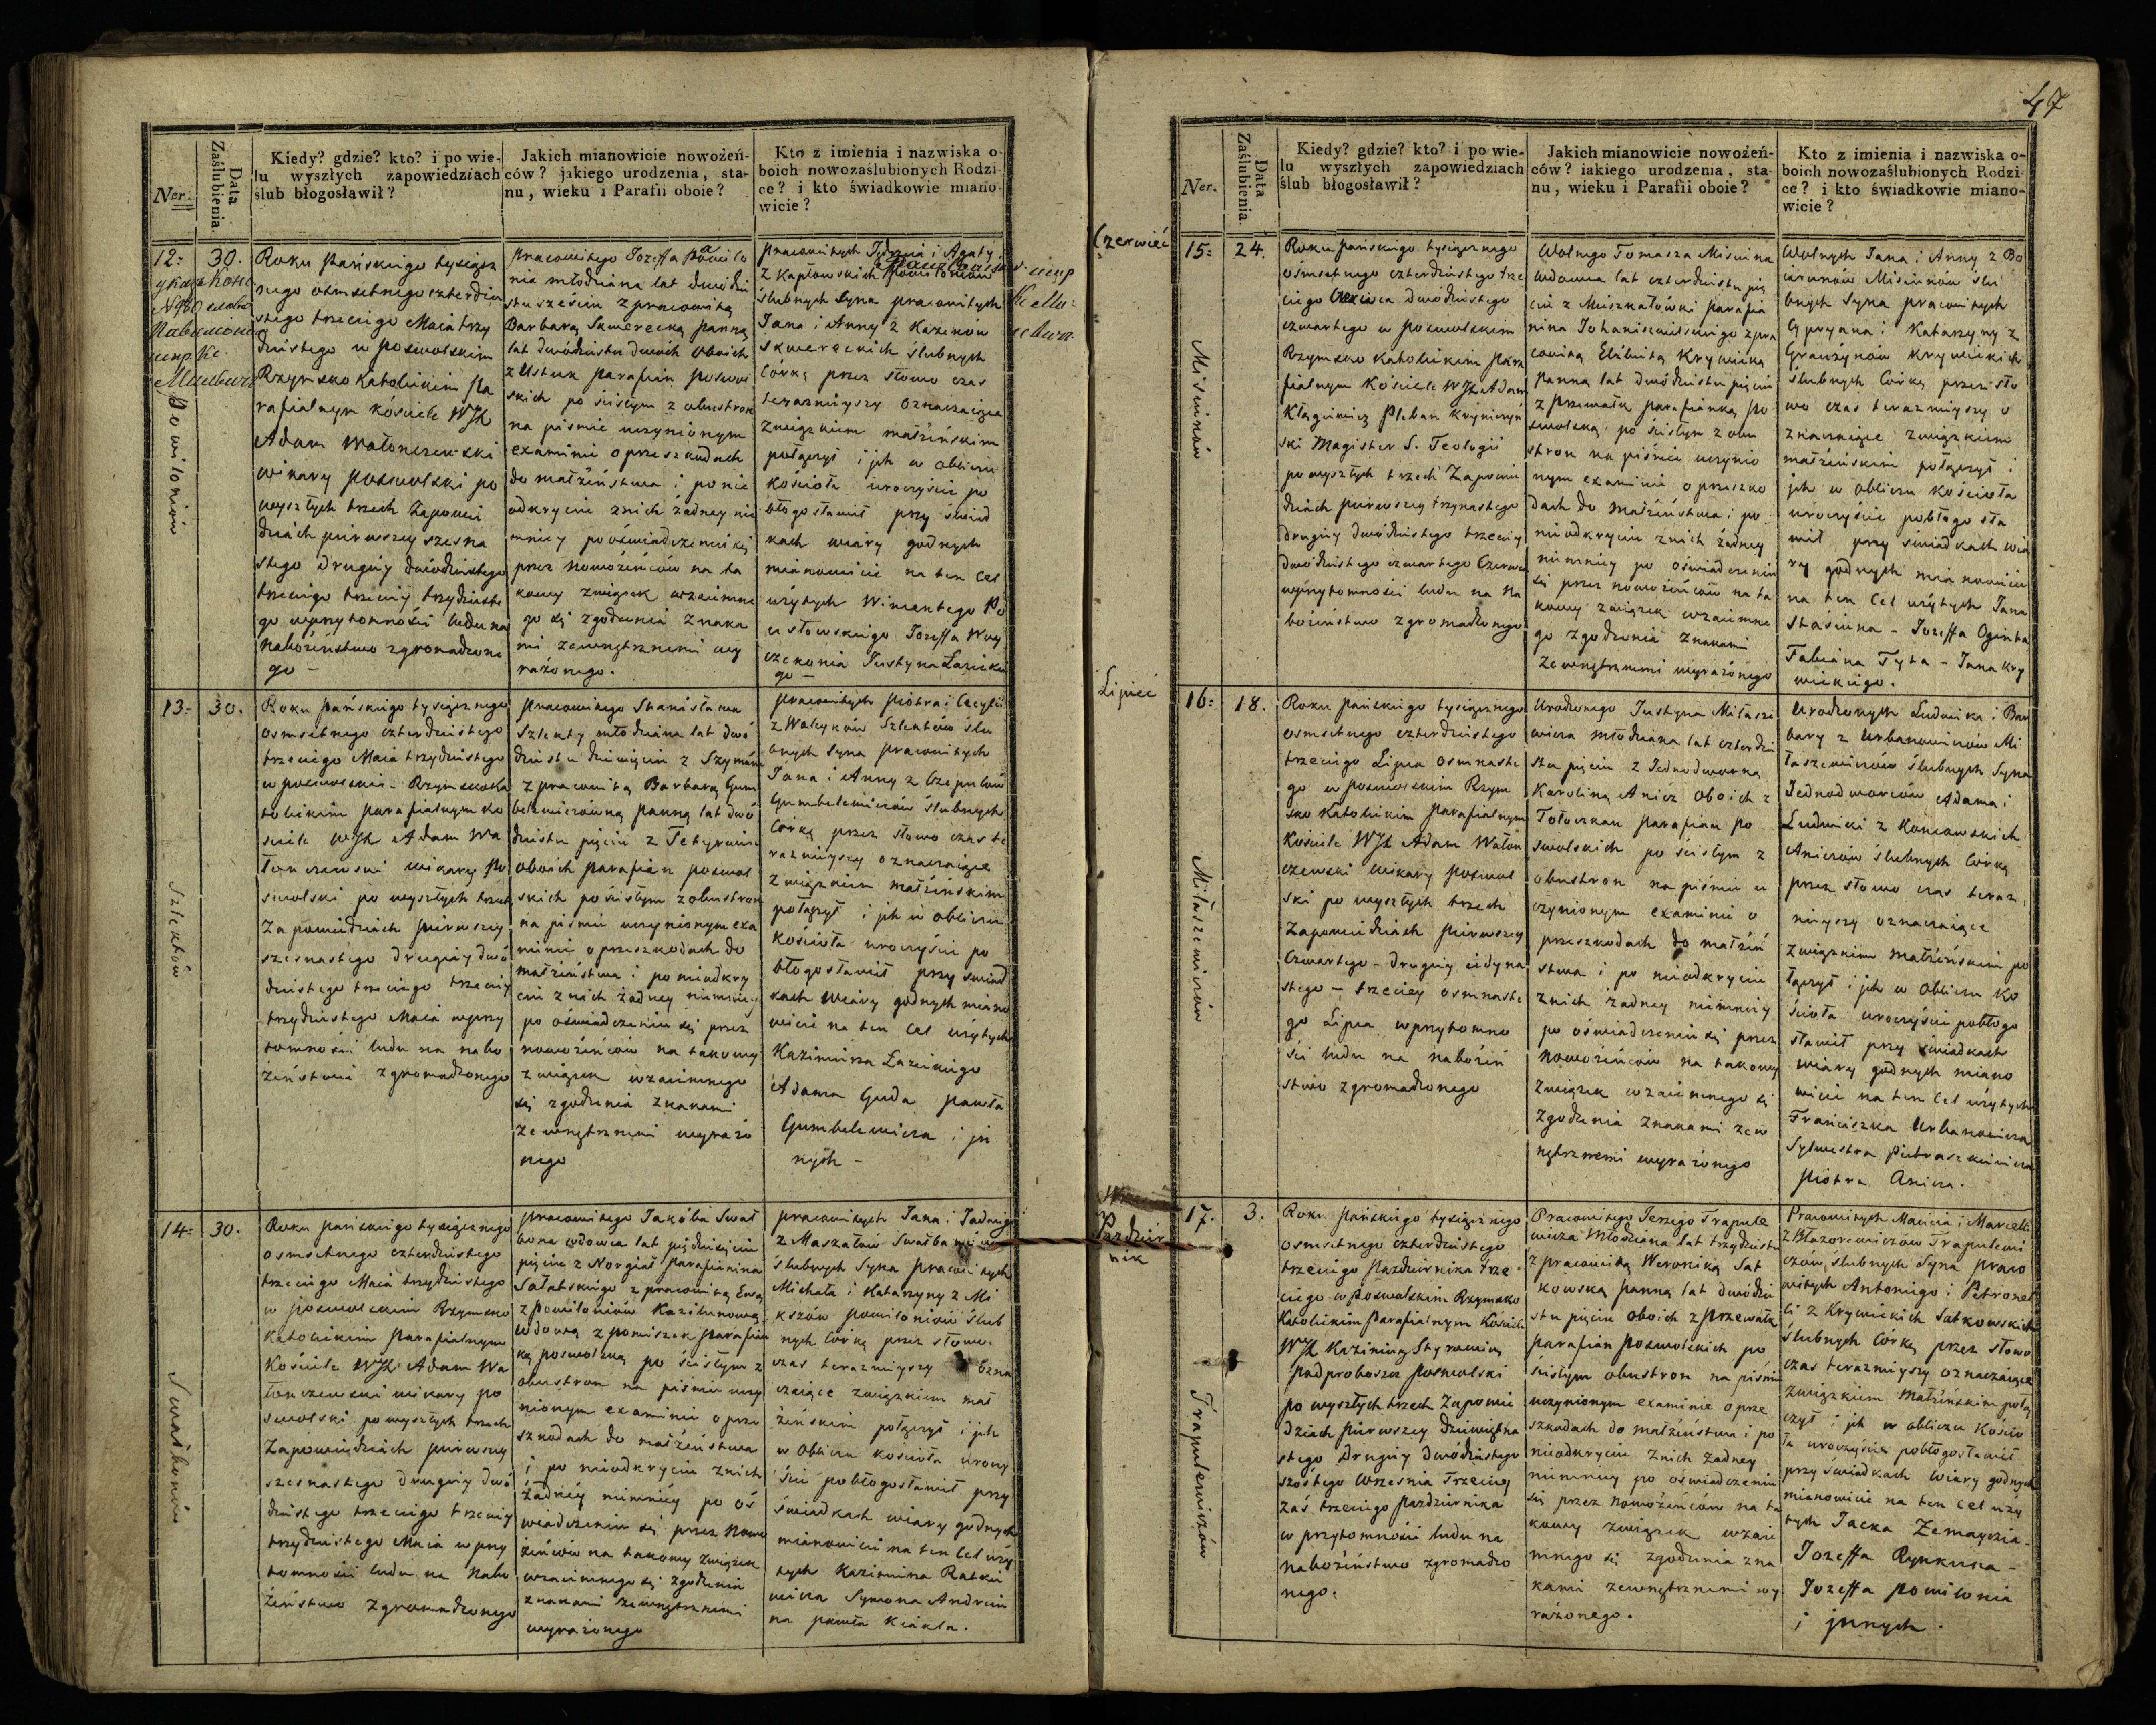 Ner.
Data
Zaślubienia.
Kiedy? gdzie? kto? i po wie-
lu wyszłych zapowiedziach
ślub błogosławił?
Jakich mianowicie nowożeń-
ców? jakiego urodzenia, sta-
nu, wieku i Parafii oboie?
Kto z imienia i nazwiska o-
boich nowozaślubionych Rodzi
ce? i kto świadkowie miano-
wicie?
12=
30.
Powiloniów
Roku Pańskiego tysiącz
nego osmsetnego czterdzie
stego trzeciego Maia trzy
dziestego w poswolskim
Rzymsko Katolickim pa
rafialnym kościele WJX
Adam Wałonczewski
wikary poswolski po
wyszłych trzech Zapowie
dziach pierwszey szesna
stego drugiey dwódziestego
trzeciego trzeciey trzydzieste
go wprzytomności ludu na
nabożeństwo zgromadzone
go –
Pracowitego Jozeffa Pawilo
nia młodziana lat dwódzie
stu sześciu z pracowitą
Barbarą Skwerecką panną
lat dwódziestu dwóch oboich
z Ustuk parafian poswol
skich po ścisłym z obustron
na piśmie uczynionym
examinie o przeszkodach
do małżeństwa i po nie
odkryciu z nich żadney nie
mniey po oświadczeniu się
przez nowożeńców na ta
kowy związek wzaiemne
go się zgodzenia znaka
mi zewnętrznemi wy
rażonego.
z Kapłowskich
ślubnych Syna pracowitych
Jana i Anny z Kazenow
Skwereckich ślubnych
Córką przez słowo czas
teraznieyszy oznaczaiące
związkiem małżeńskim
połączył i ich w obliczu
kościoła uroczyście po
błogosławił przy świad
kach wiary godnych
mianowicie na ten cel
użytych Wincentego
Jozeffa Woy
Justyna Łazickie
go –
13=
30.
Szlentów
Roku pańskiego tysiącznego
osmsetnego czterdziestego
trzeciego Maia trzydziestego
w poswolskim Rzymskoka
tolickim parafialnym ko
ściele WJX Adam Wa
łonczewski wikary po
swolski po wyszłych trzech
Zapowiedziach pierwszey
szesnastego drugiey dwó
dziestego trzeciego trzeciey
trzydziestego Maia wprzy
tomności ludu na nabo
żeństwo zgromadzonego
Pracowitego Stanisława
Szlenty młodziana lat dwó
dziestu dziewięciu z
z pracowitą Barbarą Gum
belewiczówną panną lat dwó
dziestu pięciu z
oboich parafian poswol
skich po ścisłym z obustron
na piśmie uczynionym exa
minie o przeszkodach do
małżeństwa i po nieodkry
ciu z nich żadney niemniey
po oświadczeniu się przez
nowożeńców na takowy
związek wzaiemnego
się zgodzenia znakami
zewnętrznemi wyrażo
nego
pracowitych piotra i Cecylii
z Walcyków Szlentów ślu
bnych Syna pracowitych
Jana i Anny z Czepulów
Gumbelewiczów ślubnych
Córką przez słowo czas te
raznieyszy oznaczaiące
związkiem małżeńskim
połączył i ich w obliczu
Kościoła uroczyście po
błogosławił przy świad
kach wiary godnych miano
wicie na ten cel użytych
Kazimierza Łazickiego
Adama Guda pawła
Gumbelewicza i in
nych –
14=
30.
Swałbonów
Roku pańskiego tysiącznego
osmsetnego czterdziestego
trzeciego Maia trzydziestego
w poswolskim Rzymsko
Katolickim parafialnym
Kościele WJX Adam Wa
łonczewski wikary po
swolski po wyszłych trzech
Zapowiedziach pierwszey
szesnastego drugiey dwó
dziestego trzeciego trzeciey
trzydziestego Maia wprzy
tomności ludu na nabo
żeństwo zgromadzonego
pracowitego Jakóba Swał
bona wdowca lat pięćdziesięciu
pięciu z Norgiał parafianina
Sałatskiego z pracowitą Ewą
z Powiloniów Kazilunową
wdową z pomiszek parafian
ką poswolską po ścisłym z
obustron na piśmie uczy
nionym examinie o prze
szkodach do małżeństwa
i po nieodkryciu znich
żadnéy niemniéy po oś
wiadczeniu się przez nowo
żeńców na takowy związek
wzaiemnego się zgodzenia
znakami zewnętrznemi
wyrażonego
pracowitych Jana i Jadwigi
z Maszałów
ślubnych Syna pracowitych
Michała i Katarzyny z Mi
kszów powiloniów ślub
nych Córką przez słowo
czas terazniejszy ozna
czaiące związkiem mał
żeńskim połączył i ich
w obliczu kościoła uroczy
ście pobłogosławił przy
świadkach wiary godnych
mianowicie na ten cel uży
tych Kazimirza Ratkie
wicza Symona Andreiu
na pawła Kiakla.
47
Ner.
Data
Zaślubienia.
Kiedy? gdzie? kto? i po wie-
lu wyszłych zapowiedziach
ślub błogosławił?
Jakich mianowicie nowożeń-
ców? iakiego urodzenia, sta-
nu, wieku i Parafii oboie?
Kto z imienia i nazwiska o-
boich nowozaślubionych Rodzi-
ce? i kto świadkowie miano-
wicie?
Czerwiec
15=
24.
Misiunów
Roku pańskiego tysiącznego
ośmsetnego czterdziestego trze
ciego Czerwca dwódziestego
czwartego w poswolskim
Rzymsko Katolickim para
fialnym Kościele WJX Adam
Kłągiewicz Pleban Kryniczyń
ski Magister S. Teologii
po wyszłych trzech Zapowie
dziach pierwszey trzynastego
drugiey dwódziestego trzeciey
dwódziestego czwartego Czerwca
wprzytomności ludu na na
bożeństwo zgromadzonego
Wolnego Tomasza Misiuna
wdowca lat czterdziestu pię
ciu z Muszkatówki parafia
nina Johaniszkielskiego z pra
cowitą Elżbietą Krywicką
panną lat dwódziestu pięciu
z Przewałk parafianką po
swolską po ścisłym z obu
stron na piśmie uczynio
nym examinie o przeszko
dach do małżeństwa i po
nieodkryciu znich żadney
niemniey po oświadczeniu
się przez nowożeńców na ta
kowy związek wzaiemne
go zgodzenia znakami
zewnętrznemi wyrażonego
Wolnych Jana i Anny z Bo
Misiunów ślu
bnych Syna pracowitych
Cypryana i Katarzyny z
Grawżynów Krywickich
ślubnych Córką przez sło
wo czas terazniejszy o
znaczaiące związkiem
małżeńskim połączył i
ich w obliczu Kościoła
uroczyście pobłogosła
wił przy świadkach wia
ry godnych mianowicie
na ten cel użytych Jana
Stasiuna – Jozeffa Oginta
Fabiana Tyta – Jana Kry
wickiego.
Lipiec
16=
18.
Miłaszewiczów
Roku pańskiego tysiącznego
osmsetnego czterdziestego
trzeciego Lipca osmnaste
go w poswolskim Rzym
sko Katolickim parafialnym
Kościele WJX Adam Wałon
czewski wikary poswol
ski po wyszłych trzech
Zapowiedziach pierwszey
Czwartego – drugiey iedyna
stego – trzeciey osmnaste
go Lipca wprzytomno
ści ludu na nabożeń
stwo zgromadzonego
Urodzonego Justyna Miłasze
wicza młodziana lat czterdzie
stu pięciu z Jednodworną
Karoliną Anicz oboich z
Tołoczkan parafian po
swolskich po ścisłym z
obustron na piśmie u
czynionym examinie o
przeszkodach do małżeń
stwa i po nieodkryciu
znich żadney niemniey
po oświadczeniu się przez
nowożeńców na takowy
związek wzaiemnego się
zgodzenia znakami zew
nętrznemi wyrażonego
Urodzonych Ludwika i Bar
bary z Urbanowiczów Mi
łaszewiczów ślubnych Syna
Jednodworców Adama i
Ludwiki z Konczewskich
Aniczów ślubnych Córką
przez słowo czas teraz
nieyszy oznaczaiące
związkiem małżeńskim po
łączył i ich w obliczu Ko
ścioła uroczyście pobłogo
sławił przy świadkach
wiary godnych miano
wicie na ten cel użytych
Franciszka Urbanowicza
Sylwestra Pietraszkiewicza
piotra Anicza.
Pazdzier
nik
17.
3.
Trapulewiczów
Roku pańskiego tysiącznego
osmsetnego czterdziestego
trzeciego Pazdziernika trze
ciego w Poswolskim Rzymsko
Katolickim Parafialnym Kościele
WJX Kazimierz Styrowicz
podproboszcz Poswolski
po wyszłych trzech Zapowie
dziach pierwszey dziewiętna
stego drugiey dwódziestego
szóstego Wrzesnia Trzeciey
zaś trzeciego pazdziernika
w przytomności ludu na
nabożeństwo zgromadzo
nego.
Pracowitego Jerzego Trapule
wicza Młodziana lat trzydziestu
z pracowitą Weroniką Sat
kowską panną lat dwódzie
stu pięciu oboich z Przewałk
parafian poswolskich po
ścisłym obustron na piśmie
uczynionym examinie o prze
szkodach do małżeństwa i po
nieodkryciu znich żadney
niemniey po oświadczeniu
się przez nowożeńców na ta
kowy związek wzaie
mnego się zgodzenia zna
kami zewnętrznemi wy
rażonego.
Pracowitych Macieia i Marcelli
z Błazorewiczów Trapulewi
czów, ślubnych Syna praco
witych Antoniego i Petronel
li z Krywickich Satkowskich
ślubnych Córką przez słowo
czas terazniejszy oznaczaiące
związkiem Małżeńskim połą
czył i ich w obliczu Kościo
ła uroczyście pobłogosławił
przy świadkach wiary godnych
mianowicie na ten cel uży
tych Jacka Żemaycia –
Jozeffa Rynkuna –
Jozeffa powilonia
i innych.